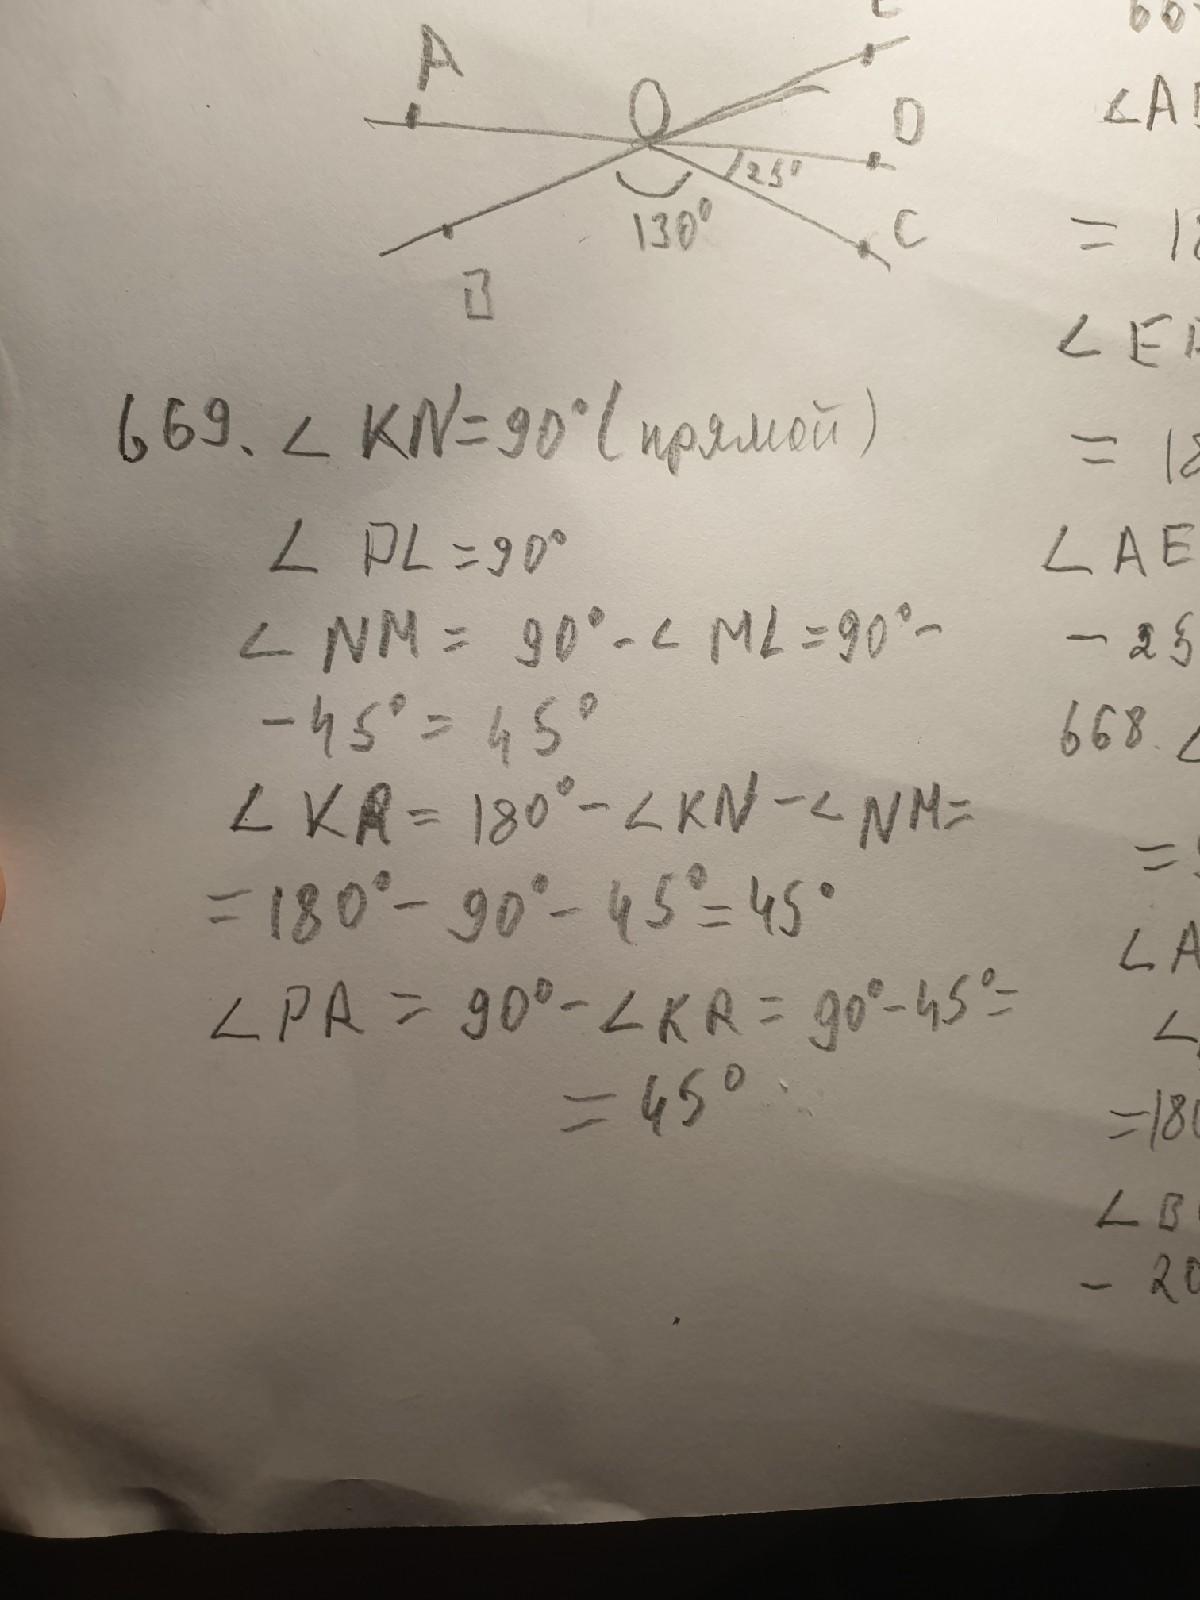 A
O
D
25°
130°
C
B
669. ∠ KN = 90° (прямой)
∠ PL = 90°
∠ NM = 90° - ∠ ML = 90° -
- 45° = 45°
∠ KA = 180° - ∠ KN - ∠ NM =
= 180° - 90° - 45° = 45°
∠ PA = 90° - ∠ KA = 90° - 45° =
= 45°
= 18
∠ E
= 18
∠ AE
- 25
668. ∠
∠ A
∠
= 180
∠ B
- 20